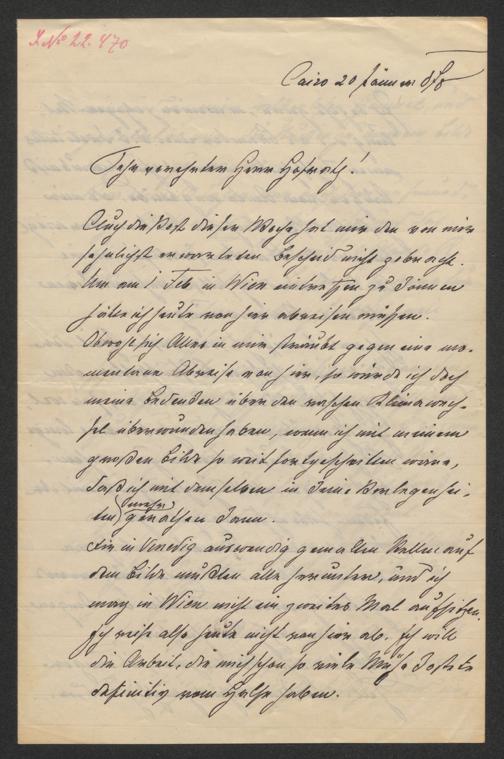 I.N. 22.470
Cairo 20 Jänner 878
Sehr verehrter Herr Hofrath!
Auch die Post dieser Woche hat mir den von mir
sehnlichst erwarteten Bescheid nicht gebracht.
Um am 1 Feb in Wien eintreffen zu können
hätte ich heute von hier abreisen müssen.
Obwohl sich Alles in mir sträubt gegen eine mo-
mentane Abreise von hier, so würde ich doch
meine Bedenken über den raschen Klimawech-
sel überwunden haben, wenn ich mit meinem
großen Bilde so weit fortgeschritten wäre,
daß ich mit demselben in keine Verlegenhei-
ten (mehr) gerathen kann.
Die in Venedig auswendig gemalten Stellen auf
dem Bilde mußten alle herunter, und ich
mag in Wien nicht ein zweites Mal aufsitzen.
Ich reise also heute nicht von hier ab. Ich will
die Arbeit, die mich schon so viele Mühe kostete
definitiv vom Halse haben.